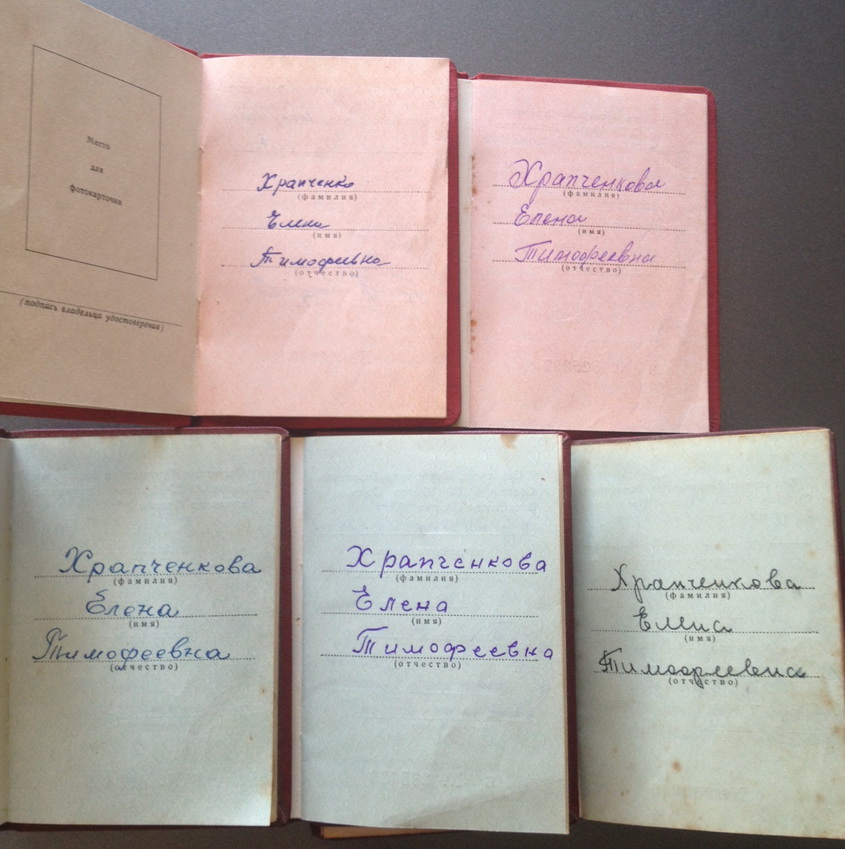 Место
для
фотокарточки
(подпись владельца удостоверения)
Храпченко
(фамилия)
Елена
(имя)
Тимофеевна
(отчество)
Храпченкова
(фамилия)
Елена
(имя)
Тимофеевна
(отчество)
Храпченкова
(фамилия)
Елена
(имя)
Тимофеевна
(отчество)
Храпченкова
(фамилия)
Елена
(имя)
Тимофеевна
(отчество)
Храпченкова
(фамилия)
Елена
(имя)
Тимофеевна
(отчество)